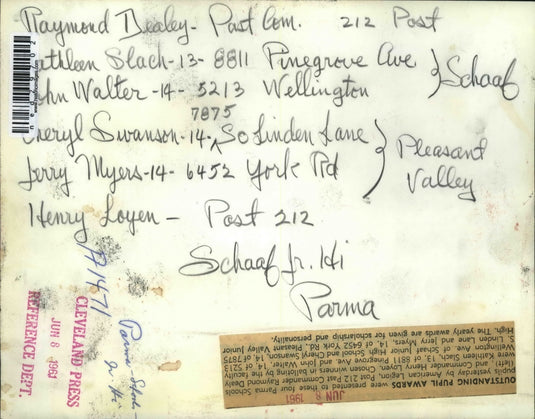 Raymond Dealey - Past Com. 212 Post
athleen Slach-13- 8811 Pinegrove Ave
hn Walter -14- 5213 Wellington
Schaaf
7875
heryl Swanson -14- So Linden Lane
Jerry Myers -14- 6452 York Rd
Pleasant
Valley
Henry Loyen - Post 212
Schaaf Jr. Hi
Parma
P1471
Parma
CLEVELAND PRESS
JUN 8 1961
REFERENCE DEPT.
OUTSTANDING PUPIL AWARDS were presented to these four Parma Schools
pupils yesterday by American Legion, Post 212 Past Commander Raymond Dealy
(left) and Commander Henry Loyen. Chosen winners by the faculty
were Kathleen Slach, 13, of 8811 Pinegrove Ave. and John Walter, 14, of 5213
Wellington Ave. of Schaaf Junior High School and Cheryl Swanson, 14, of 7875
S. Linden Lane and Jerry Myers, 14, of 6452 York Rd. Pleasant Valley Junior
High. The yearly awards are given for scholarship and personality.
JUN 8 1961